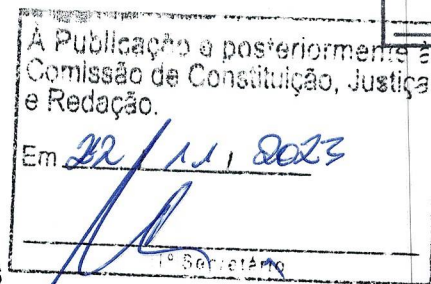 À Publicação e posteriormente à
Comissão de Constituição, Justiça
e Redação.
Em 22 / 11 / 2023
1º Secretário